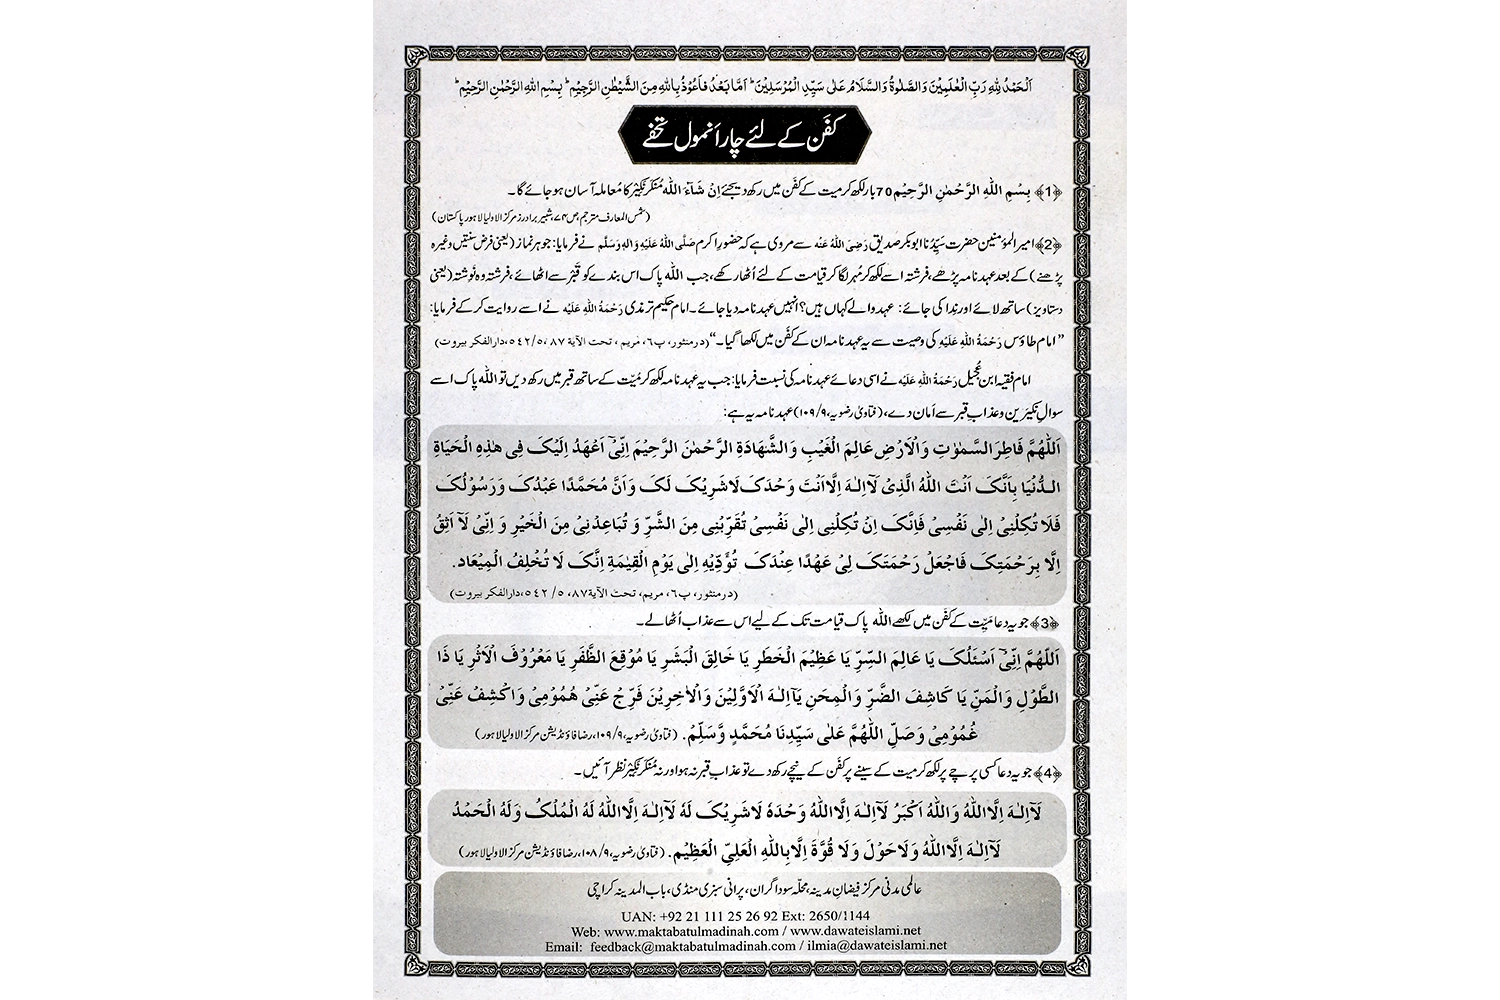 اَلْحَمْدُ لِلّٰهِ رَبِّ الْعٰلَمِيْنَ وَالصَّلٰوةُ وَالسَّلَامُ عَلٰى سَيِّدِ الْمُرْسَلِيْنَ ؕ اَمَّا بَعْدُ فَاَعُوْذُ بِاللّٰهِ مِنَ الشَّيْطٰنِ الرَّجِيْمِ ؕ بِسْمِ اللّٰهِ الرَّحْمٰنِ الرَّحِيْمِ ؕ
کفَن کے لئے چار اَنمول تحفے
﴿1﴾ بِسْمِ اللّٰهِ الرَّحْمٰنِ الرَّحِيْمِ 70 بار لکھ کر میت کے کفَن میں رکھ دیجئے اِنْ شَآءَ اللّٰه مُنکَر نَکِیْر کا مُعاملہ آسان ہو جائے گا۔
(شمس المعارف مترجم ص۷۴، شبیر برادرز مرکز الاولیا لاہور پاکستان)
﴿2﴾ امیر المؤمنین حضرت سَیِّدُنا ابو بکر صدیق رَضِیَ اللّٰهُ عَنْه سے مروی ہے کہ حضورِ اکرم صَلَّی اللّٰهُ عَلَیْهِ وَاٰلِهٖ وَسَلَّم نے فرمایا: جو ہر نماز (یعنی فرض سنتیں وغیرہ
پڑھنے) کے بعد عہد نامہ پڑھے، فرشتہ اسے لکھ کر مُہر لگا کر قیامت کے لئے اُٹھا رکھے، جب اللّٰه پاک اس بندے کو قَبْر سے اٹھائے، فرشتہ وہ نَوِشتہ (یعنی
دستاویز) ساتھ لائے اور نِدا کی جائے: عہد والے کہاں ہیں؟ انہیں عہد نامہ دیا جائے۔ امام حکیم ترمذی رَحْمَةُ اللّٰهِ عَلَیْه نے اسے روایت کر کے فرمایا:
"امام طاؤس رَحْمَةُ اللّٰهِ عَلَیْه کی وصیت سے یہ عہد نامہ ان کے کفَن میں لکھا گیا۔" (درمنثور، پ٦، مریم ، تحت الآیة ٨٧ ،٥٤٢/٥،دارالفکر بیروت)
امام فقیہ ابن عُجَیل رَحْمَةُ اللّٰهِ عَلَیْه نے اسی دعائے عہد نامہ کی نسبت فرمایا: جب یہ عہد نامہ لکھ کر مُیّت کے ساتھ قبر میں رکھ دیں تو اللّٰه پاک اسے
سوالِ نکیرین و عذابِ قبر سے اَمان دے، (فتاویٰ رضویہ، ۱۰۹/۹) عہد نامہ یہ ہے:
اَللّٰهُمَّ فَاطِرَ السَّمٰوٰتِ وَالْاَرْضِ عَالِمَ الْغَيْبِ وَالشَّهَادَةِ الرَّحْمٰنَ الرَّحِيْمَ اِنِّيْٓ اَعْهَدُ اِلَيْكَ فِي هٰذِهِ الْحَيَاةِ
الدُّنْيَا بِاَنَّكَ اَنْتَ اللّٰهُ الَّذِيْ لَآ اِلٰهَ اِلَّا اَنْتَ وَحْدَكَ لَا شَرِيْكَ لَكَ وَاَنَّ مُحَمَّدًا عَبْدُكَ وَرَسُوْلُكَ
فَلَا تَكِلْنِيْ اِلٰى نَفْسِيْ فَاِنَّكَ اِنْ تَكِلْنِيْ اِلٰى نَفْسِيْ تُقَرِّبْنِي مِنَ الشَّرِّ وَ تُبَاعِدْنِيْ مِنَ الْخَيْرِ وَ اِنِّيْ لَآ اَثِقُ
اِلَّا بِرَحْمَتِكَ فَاجْعَلْ رَحْمَتَكَ لِيْ عَهْدًا عِنْدَكَ تُؤَدِّيْهِ اِلٰى يَوْمِ الْقِيٰمَةِ اِنَّكَ لَا تُخْلِفُ الْمِيْعَادَ.
(درمنثور، پ٦، مریم، تحت الآیة٨٧، ٥/ ٥٤٢،دارالفکر بیروت)
﴿3﴾ جو یہ دعا مَیِّت کے کفَن میں لکھے اللّٰه پاک قیامت تک کے لیے اس سے عذاب اُٹھالے۔
اَللّٰهُمَّ اِنِّيْٓ اَسْئَلُكَ يَا عَالِمَ السِّرِّ يَا عَظِيْمَ الْخَطَرِ يَا خَالِقَ الْبَشَرِ يَا مُوْقِعَ الظَّفَرِ يَا مَعْرُوْفَ الْاَثْرِ يَا ذَا
الطَّوْلِ وَالْمَنِّ يَا كَاشِفَ الضَّرِّ وَالْمِحَنِ يَآ اِلٰهَ الْاَوَّلِيْنَ وَالْاٰخِرِيْنَ فَرِّجْ عَنِّيْ هُمُوْمِيْ وَاكْشِفْ عَنِّيْ
غُمُوْمِيْ وَصَلِّ اللّٰهُمَّ عَلٰى سَيِّدِنَا مُحَمَّدٍ وَّسَلِّمْ. (فتاویٰ رضویہ، ۱۰۹/۹، رضا فاؤنڈیشن مرکز الاولیا لاہور)
﴿4﴾ جو یہ دعا کسی پرچے پر لکھ کر میت کے سینے پر کفَن کے نیچے رکھ دے تو عذابِ قبر نہ ہو اور نہ مُنکَر نَکِیْر نظر آئیں۔
لَآ اِلٰهَ اِلَّا اللّٰهُ وَاللّٰهُ اَكْبَرُ لَآ اِلٰهَ اِلَّا اللّٰهُ وَحْدَهٗ لَا شَرِيْكَ لَهٗ لَآ اِلٰهَ اِلَّا اللّٰهُ لَهُ الْمُلْكُ وَلَهُ الْحَمْدُ
لَآ اِلٰهَ اِلَّا اللّٰهُ وَلَا حَوْلَ وَلَا قُوَّةَ اِلَّا بِاللّٰهِ الْعَلِيِّ الْعَظِيْمِ. (فتاویٰ رضویہ، ۱۰۸/۹، رضا فاؤنڈیشن مرکز الاولیا لاہور)
عالمی مدنی مرکز فیضانِ مدینہ، محلّہ سوداگران، پرانی سبزی منڈی، باب المدینہ کراچی
UAN: +92 21 111 25 26 92 Ext: 2650/1144
Web: www.maktabatulmadinah.com / www.dawateislami.net
Email: feedback@maktabatulmadinah.com / ilmia@dawateislami.net